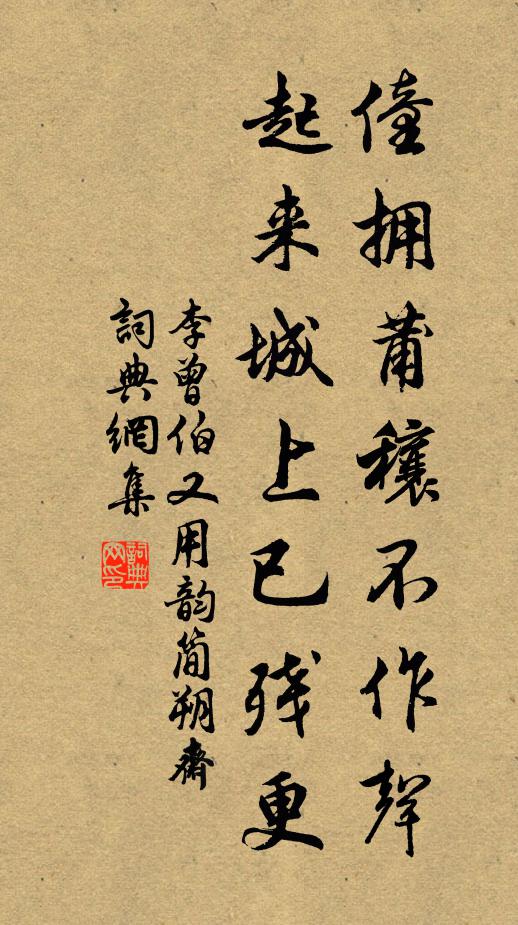 僮拥莆穰不作聲
起来城上已残更
李曾伯又用韵简朔齋
詞典網集
詞典网印